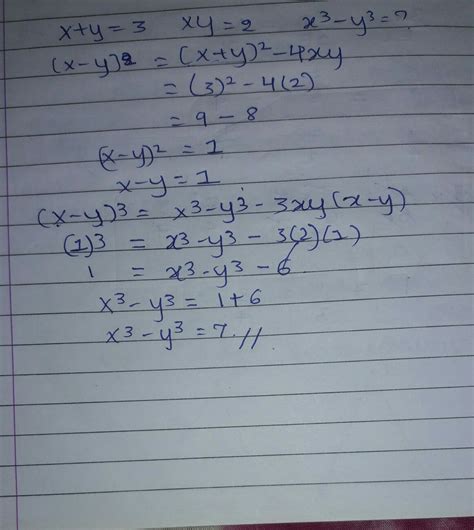 x+y = 3 xy = 2 x³-y³ = ?
(x-y)2 = (x+y)² - 4xy
= (3)² - 4(2)
= 9 - 8
(x-y)² = 1
x-y = 1
(x-y)³ = x³-y³ - 3xy(x-y)
(1)³ = x³-y³ - 3(2)(1)
1 = x³-y³ - 6
x³-y³ = 1+6
x³-y³ = 7 //